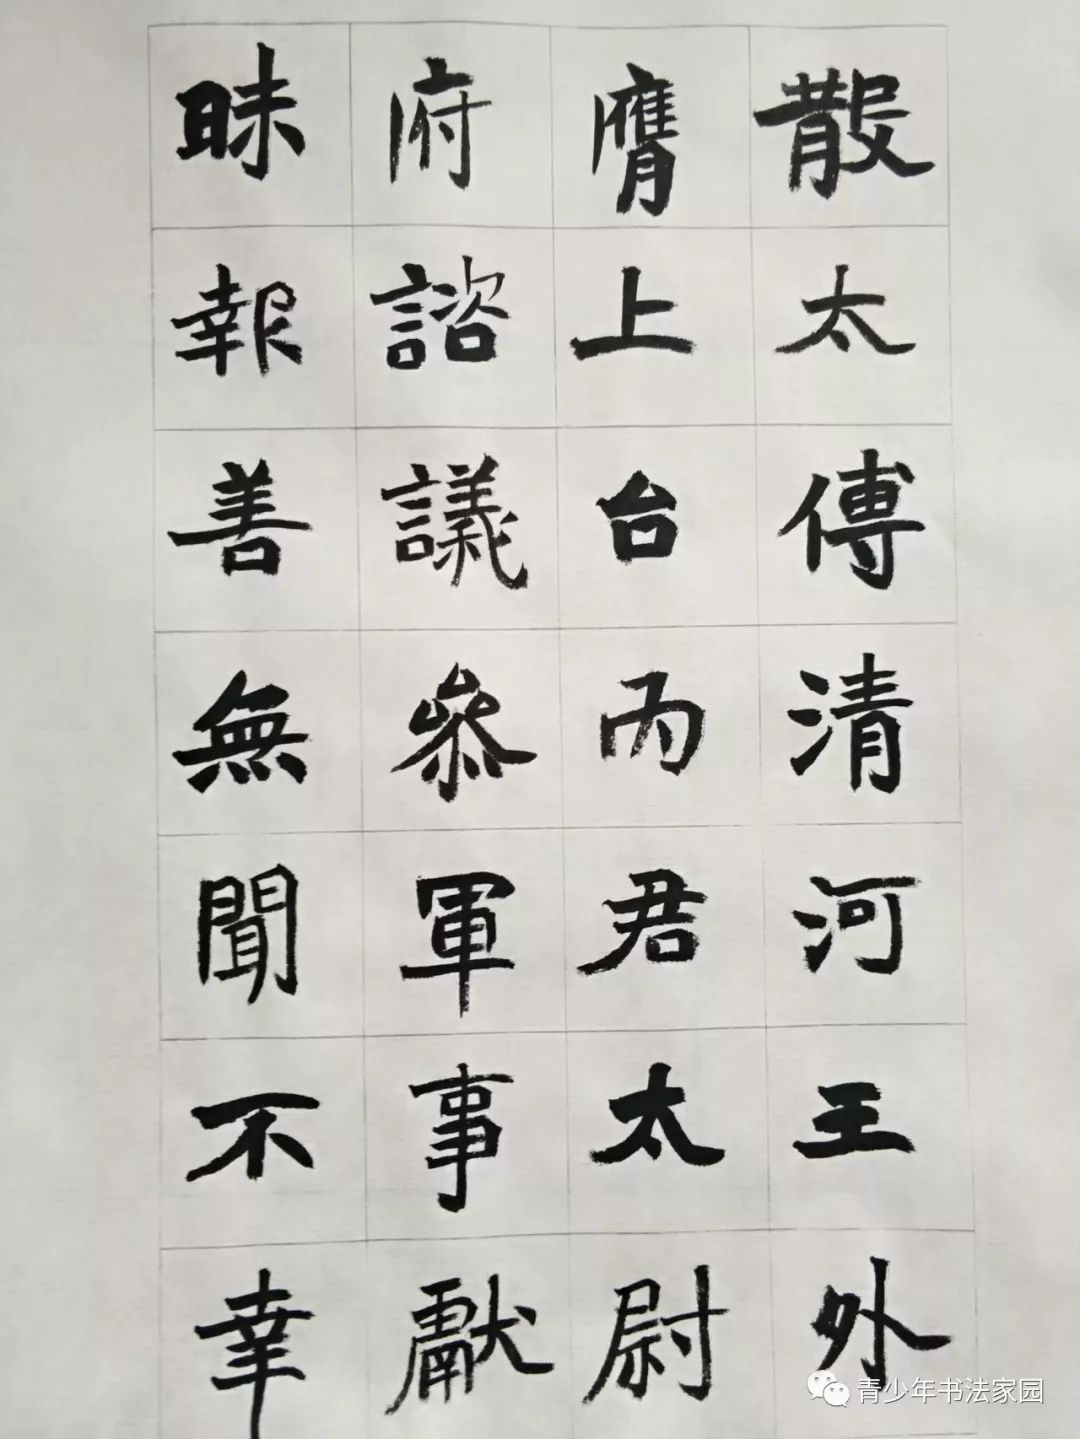 散太傅清河王外
膺上台而君太尉
府諮議參軍事獻
昧報善無聞不幸
青少年书法家园